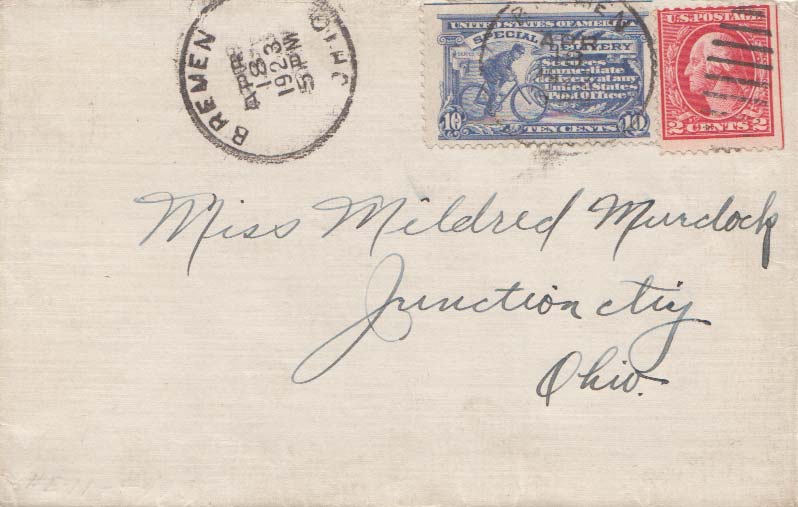 BREMEN
OHIO
APR
18
1923
5 PM
UNITED STATES OF AMERICA
SPECIAL DELIVERY
Secures
Immediate
Delivery at any
United States
Post Office
10 TEN CENTS 10
BREMEN
APR
U.S. POSTAGE
2 CENTS 2
Miss Mildred Murdock
Junction ctiy
Ohio.